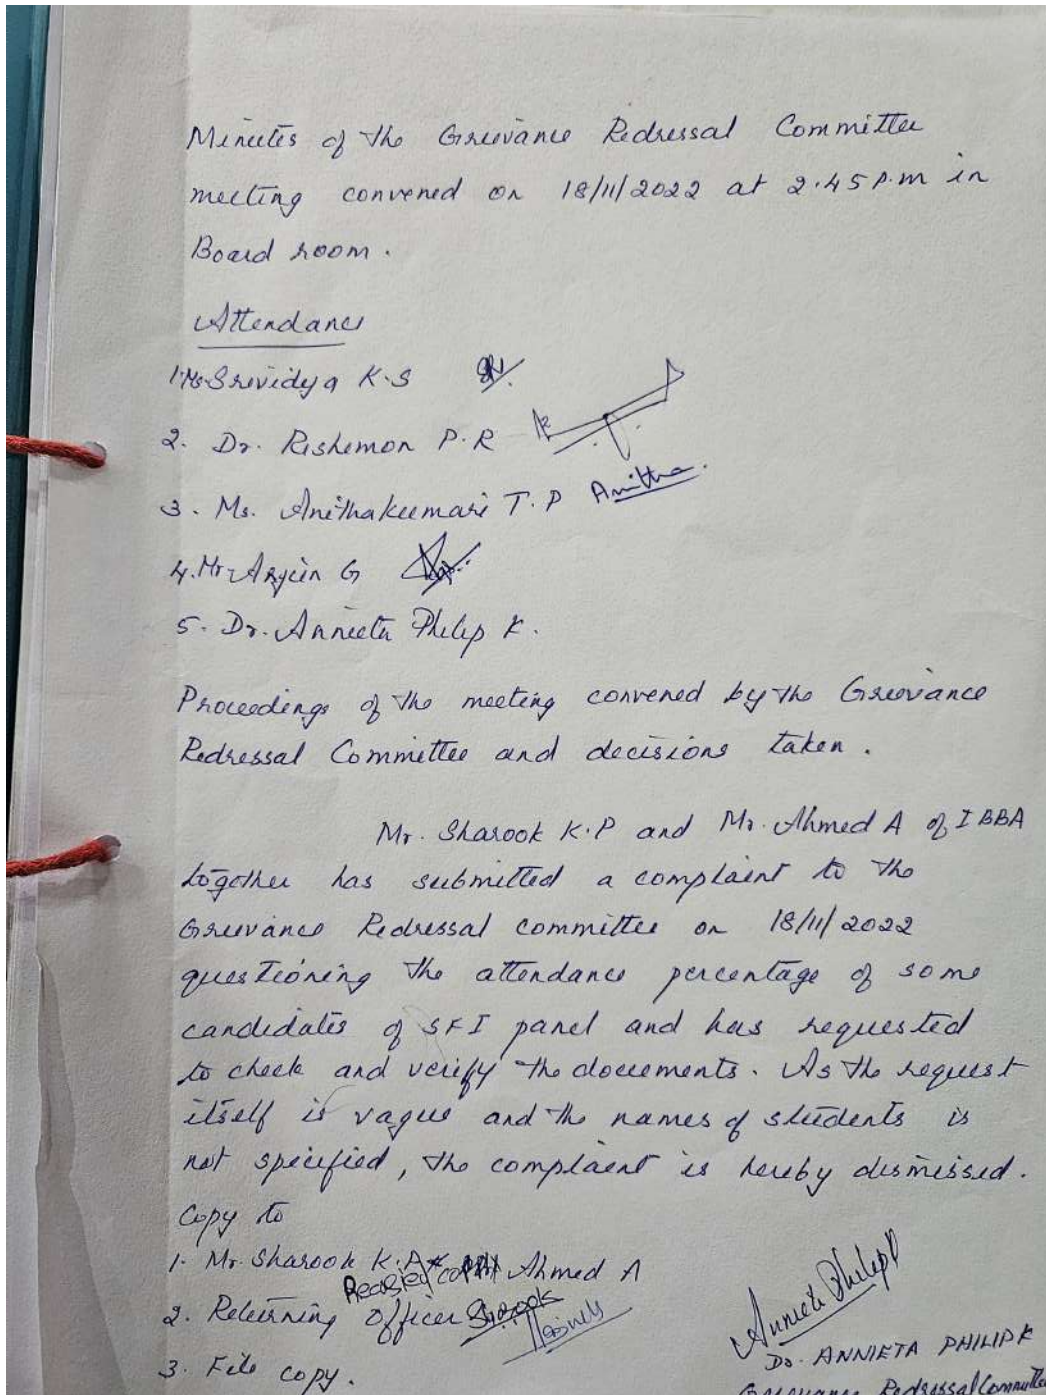 Minutes of the Grievance Redressal Committee
meeting convened on 18/11/2022 at 2.45 p.m in
Board room.
Attendance
1. Ms. Srividya K.S
2. Dr. Rishemon P.R
3. Ms. Anithakumari T.P Anitha.
4. Mr. Arjun G
5. Dr. Annieta Philip K.
Proceedings of the meeting convened by the Grievance
Redressal Committee and decisions taken.
Mr. Sharook K.P and Mr. Ahmed A of I BBA
together has submitted a complaint to the
Grievance Redressal committee on 18/11/2022
questioning the attendance percentage of some
candidates of SFI panel and has requested
to check and verify the documents. As the request
itself is vague and the names of students is
not specified, the complaint is hereby dismissed.
Copy to
1. Mr. Sharook K.A Ahmed A
2. Returning Officer Sharook
3. File copy.
Annieta Philip K
Dr. ANNIETA PHILIP K
Grievance Redressal Committee